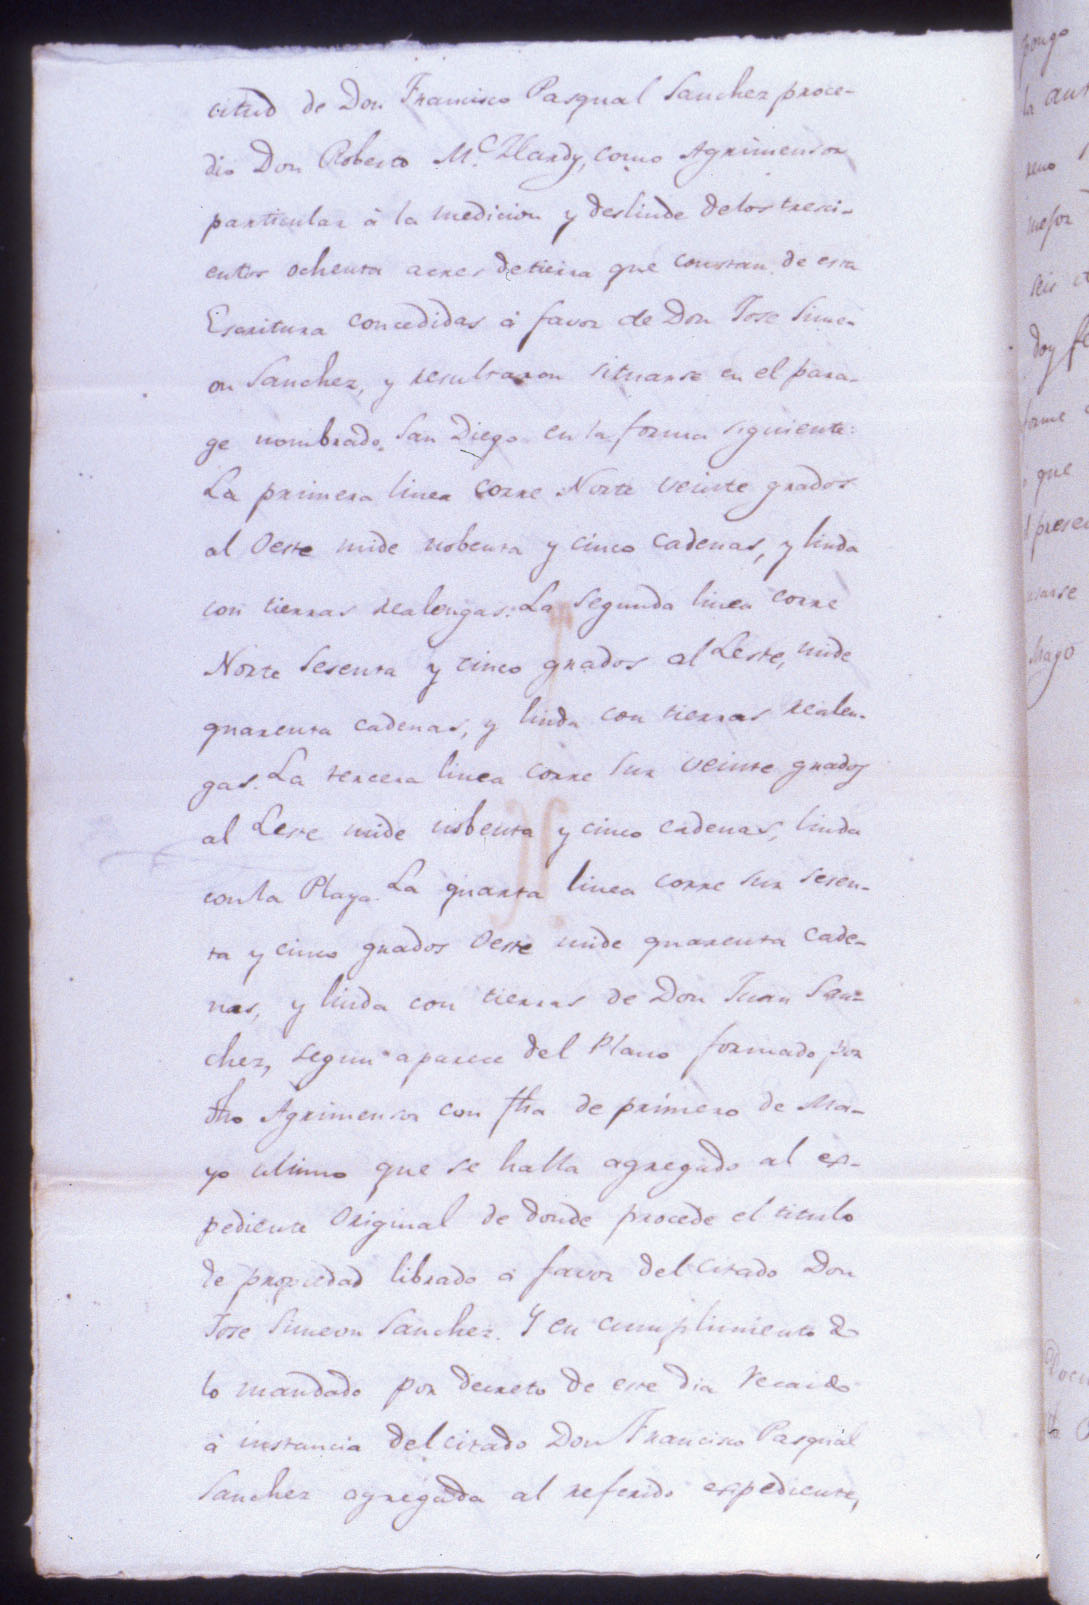 citud de Don Francisco Pasqual Sanchez proce-
dio Don Roberto Mc. Hardy, como Agrimensor
particular á la medicion y deslinde delos tresci-
entos ochenta acres detierra que constan de esta
Escritura concedidas á favor de Don Jose Sime-
on Sanchez, y resultaron situarse en el para-
ge nombrado San Diego en la forma siguiente:
La primera linea corre Norte veinte grados
al Oeste mide nobenta y cinco cadenas, y linda
con tierras realengas. La segunda linea corre
Norte Sesenta y cinco grados al Leste, mide
quarenta cadenas, y linda con tierras realen-
gas. La tercera linea corre Sur veinte grados
al Leste mide nobenta y cinco cadenas, linda
conla Playa. La quarta linea corre Sur sesen-
ta y cinco grados Oeste mide quarenta cade-
nas, y linda con tierras de Don Juan San-
chez, segun aparece del Plano formado por
dho Agrimensor con fha de primero de Ma-
yo ultimo que se halla agregado al ex-
pediente Original de donde procede el titulo
de propiedad librado á favor del citado Don
Jose Simeon Sanchez. Y en cumplimiento de
lo mandado por decreto de este dia recaido
á instancia del citado Don Francisco Pasqual
Sanchez agregada al referido expediente,
pongo
la
doy
que